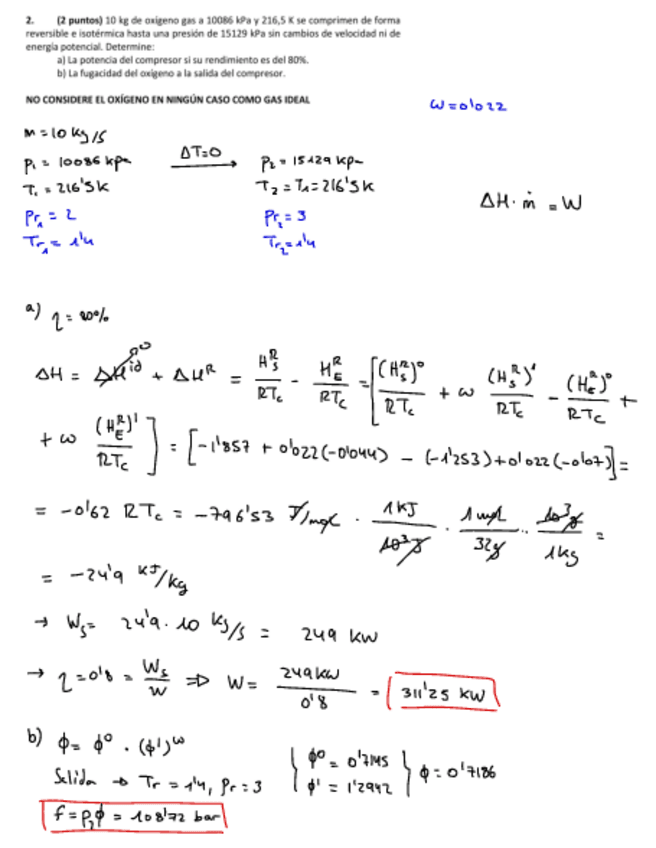 2. (2 puntos) 10 kg de oxígeno gas a 10086 kPa y 216,5 K se comprimen de forma
reversible e isotérmica hasta una presión de 15129 kPa sin cambios de velocidad ni de
energía potencial. Determine:
a) La potencia del compresor si su rendimiento es del 80%.
b) La fugacidad del oxígeno a la salida del compresor.
NO CONSIDERE EL OXÍGENO EN NINGÚN CASO COMO GAS IDEAL
ω=0'022
m = 10 kg/s
P₁ = 10086 kPa ΔT=0 → P₂ = 15129 kPa
T₁ = 216'5K T₂ = T₁ = 216'5K
ΔH · ṁ = W
Pr₁ = 2 Pr₂ = 3
Tr₁ = 1'4 Tr₂ = 1'4
a) η = 80%
ΔH = ΔH^id + ΔH^R = H_S^R/RTc - H_E^R/RTc = [(H_S^R)⁰/RTc + ω (H_S^R)¹/RTc - (H_E^R)⁰/RTc +
+ ω (H_E^R)¹/RTc] = [-1'857 + 0'022(-0'044) - (-1'253) + 0'022(-0'07)] =
= -0'62 RTc = -796'53 J/mol · 1KJ/10³J · 1mol/32g · 10³g/1kg =
= -24'9 KJ/kg
→ Ws = 24'9 · 10 KJ/s = 249 kW
→ η = 0'8 = Ws/W ⇒ W = 249kW/0'8 = 311'25 kW
b) φ = φ⁰ · (φ¹)^ω
Salida → Tr = 1'4, Pr = 3 { φ⁰ = 0'7145
φ¹ = 1'2942 } φ = 0'7186
f = P₂φ = 108'72 bar